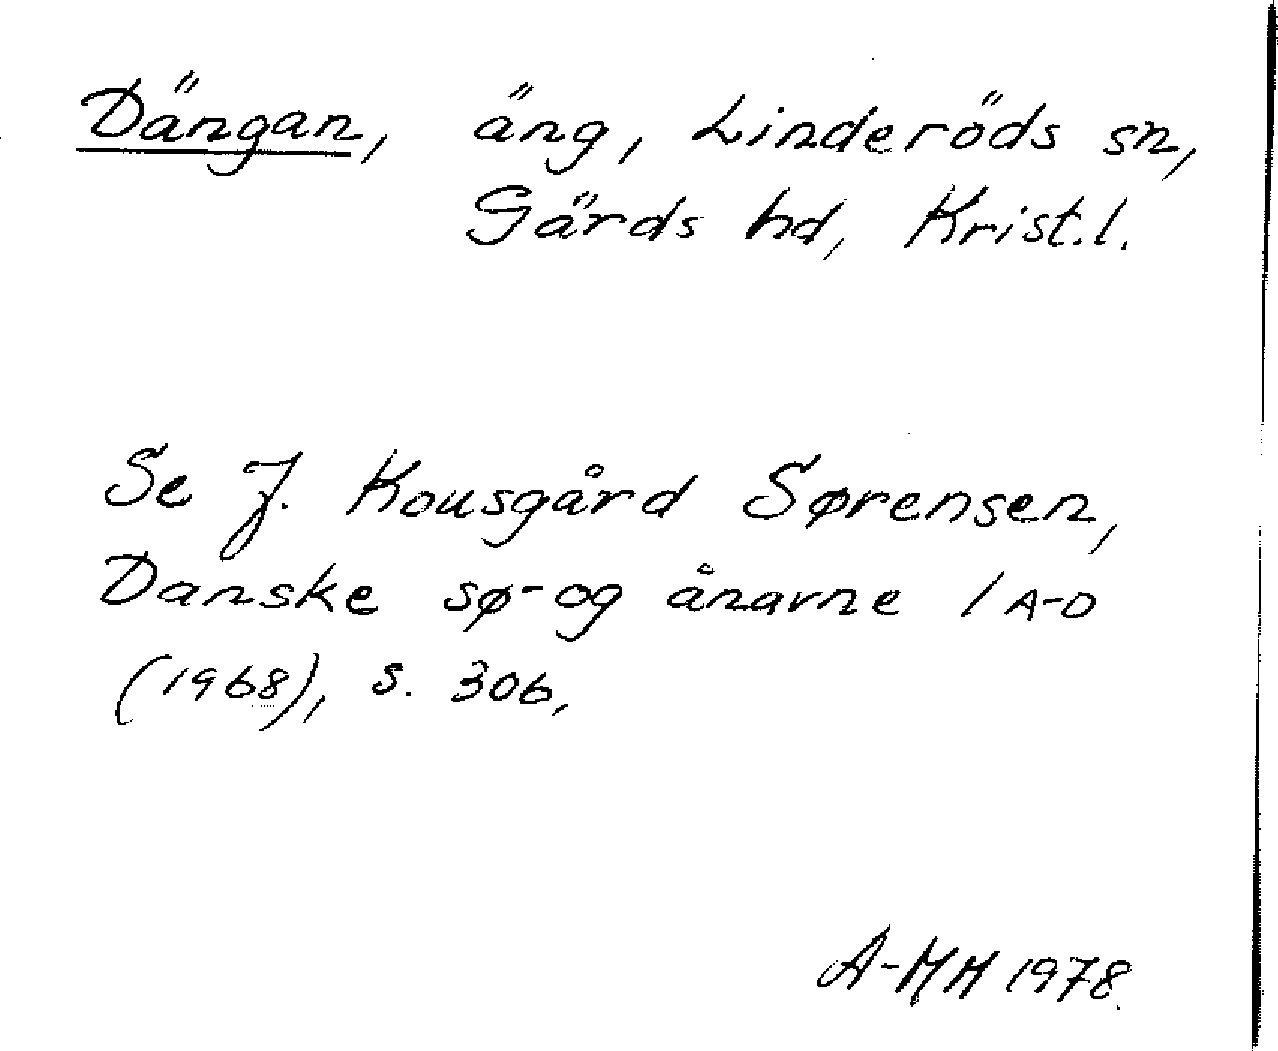 Dängan, äng, Linderöds sn,
Gärds hd, Krist.l.
Se J. Kousgård Sørensen,
Danske sø- og ånavne 1 A-D
(1968), s. 306,
A-MH 1978.